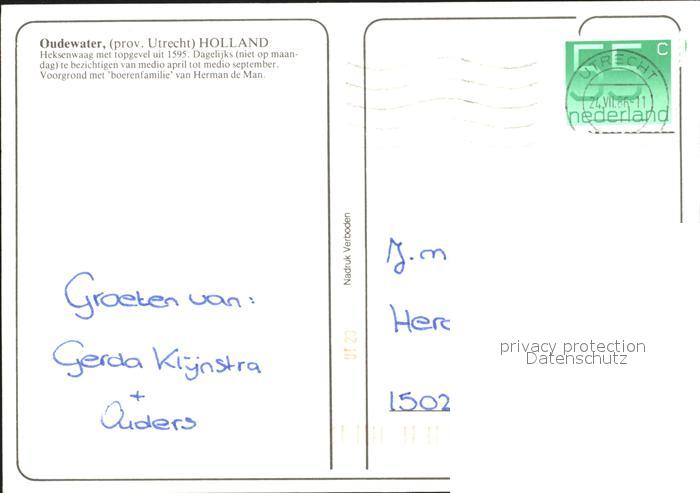 Oudewater, (prov. Utrecht) HOLLAND
Heksenwaag met topgevel uit 1595. Dagelijks (niet op maan-
dag) te bezichtigen van medio april tot medio september.
Voorgrond met 'boerenfamilie' van Herman de Man.
55 C
nederland
UTRECHT
24.VII.86-11
Nadruk Verboden
Groeten van:
Gerda Klijnstra
+
Ouders
J.m
Herc
1502
privacy protection
Datenschutz